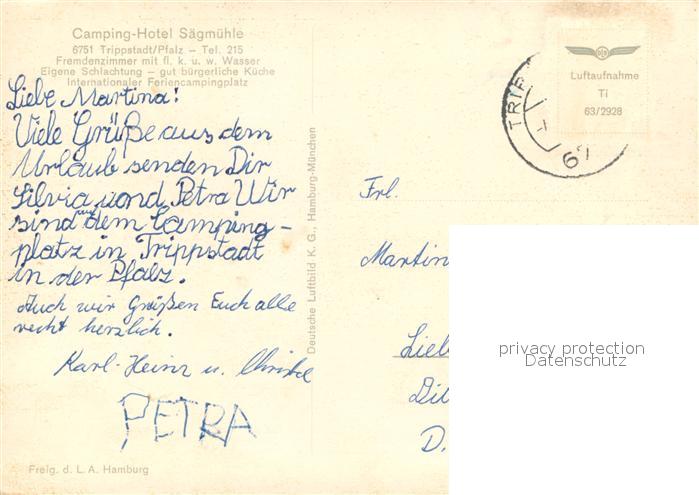 Camping-Hotel Sägmühle
6751 Trippstadt/Pfalz – Tel. 215
Fremdenzimmer mit fl. k. u. w. Wasser
Eigene Schlachtung – gut bürgerliche Küche
Internationaler Feriencampingplatz
Liebe Martina!
Viele Grüße aus dem
Urlaub senden Dir
Silvia und Petra Wir
sind auf dem Camping-
platz in Trippstadt
in der Pfalz.
Auch wir Grüßen Euch alle
recht herzlich.
Karl-Heinz u.
PETRA
Freig. d. L. A. Hamburg
Deutsche Luftbild K. G., Hamburg-München
Luftaufnahme
Ti
63/2928
TRIP
67
Frl.
Martin
Lieb
D.
privacy protection
Datenschutz